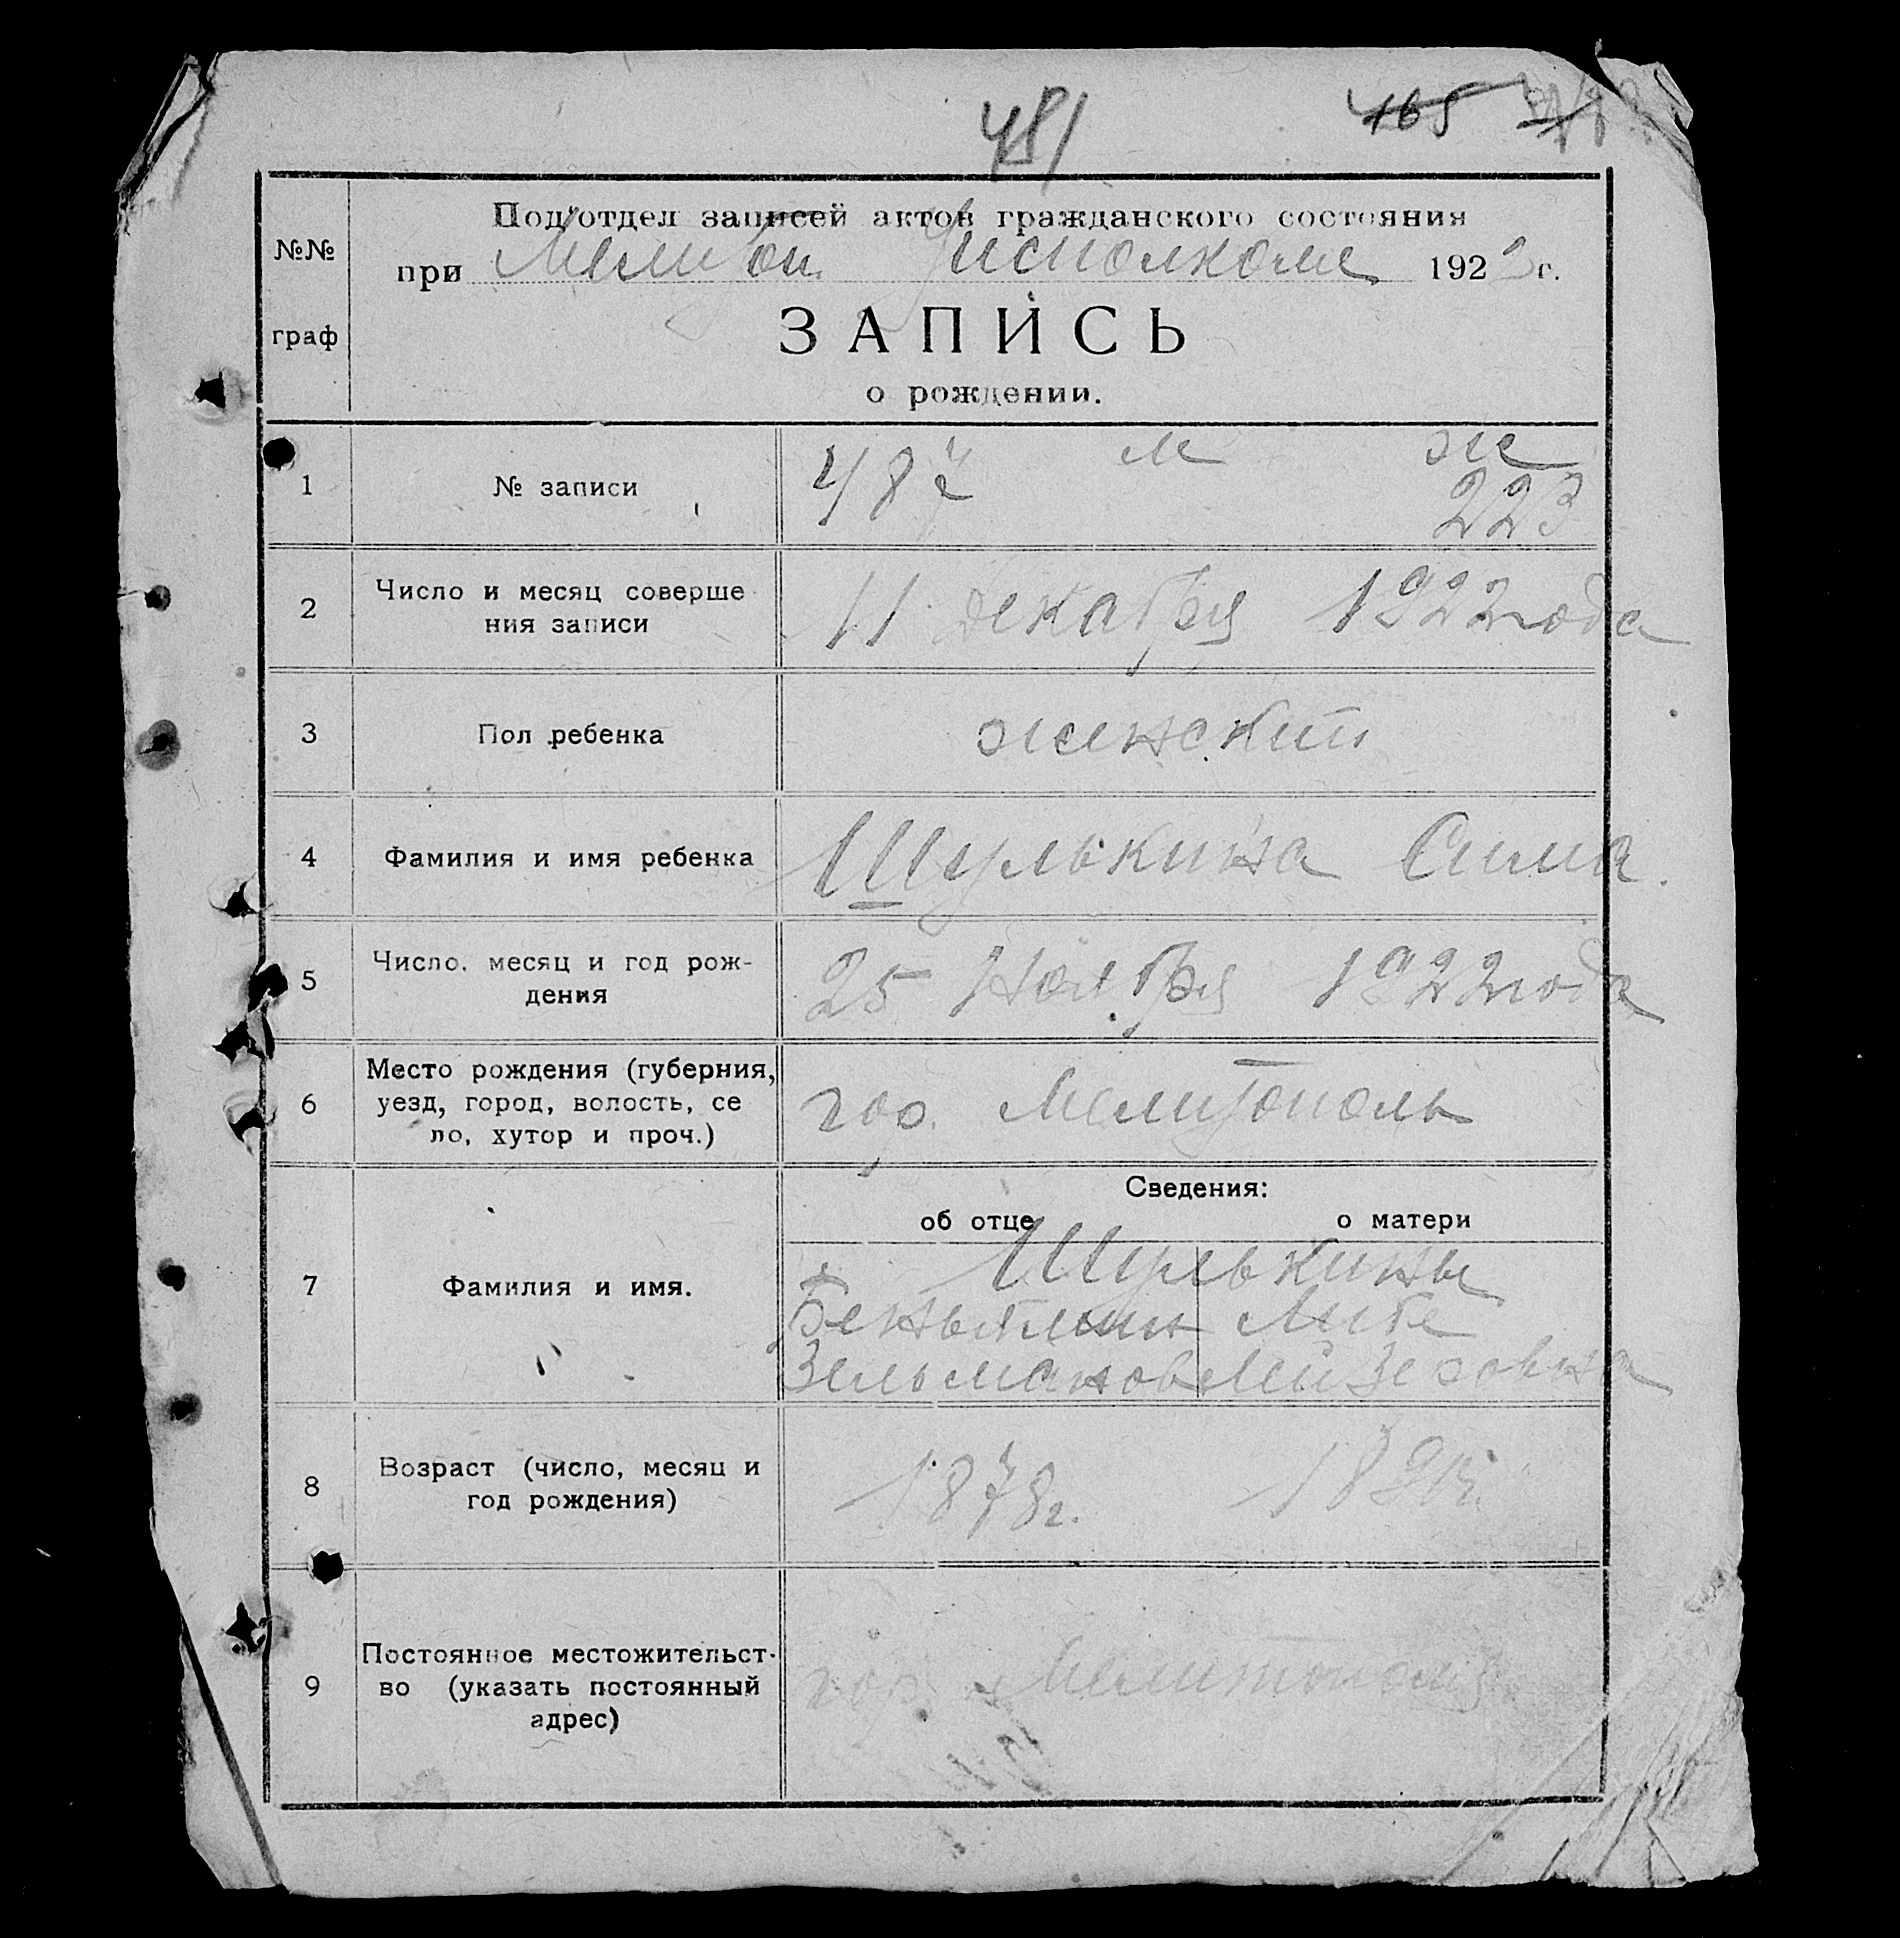 481 465
Подотдел записей актов гражданского состояния
№№
при Мелитоп. Уисполкоме 1922 г.
граф
ЗАПИСЬ
о рождении.
м ж
1 № записи 487 223
2 Число и месяц соверше
ния записи
11 декабря 1922 года
3 Пол ребенка женский
4 Фамилия и имя ребенка Шулькина Сима.
5 Число, месяц и год рож-
дения
25 Ноября 1922 года
6 Место рождения (губерния,
уезд, город, волость, се
ло, хутор и проч.)
гор. Мелитополь
Сведения:
об отце о матери
7 Фамилия и имя. Шулькины
Беньямин Либе
Зельманов Лейзеровна
8 Возраст (число, месяц и
год рождения)
1878 г.
9 Постоянное местожительст-
во (указать постоянный
адрес)
гор. Мелитополь